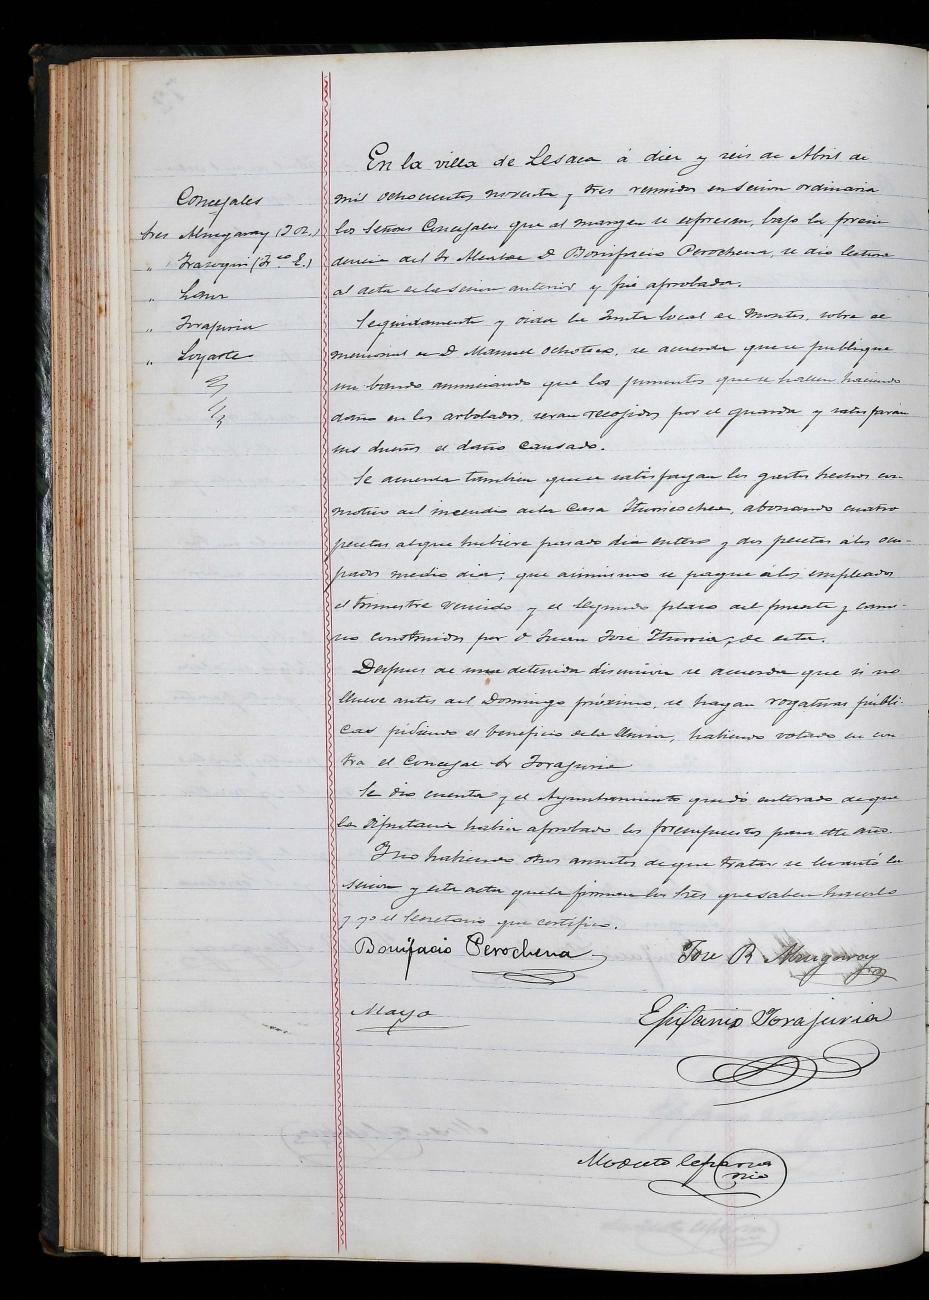 Concejales
tres Almugaray (J. R.)
" Irazoqui (Fr.co E.)
" Lanz
" Torajuria
" Loyarte
En la villa de Lesaca á diez y seis de Abril de
mil ochocientos noventa y tres reunidos en sesion ordinaria
los Señores Concejales que al margen se expresan, bajo la presi-
dencia del Sr Alcalde D Bonifacio Perochena, se dio lectura
al acta de la sesion anterior y fué aprobada.
Seguidamente y oida la Junta local de Montes, sobre el
memorial de D Manuel Ochoteco, se acuerda que se publique
un bando anunciando que los jumentos que se hallen haciendo
daño en los arbolados, seran recojidos por el guarda y satisfarán
sus dueños el daño causado.
Se acuerda tambien que se satisfagan los gastos hechos con
motivo del incendio de la Casa Iturricochea, abonando cuatro
pesetas al que hubiere pasado dia entero y dos pesetas á los ocu-
pados medio dia; que asimismo se pague á los empleados
el trimestre vencido y el segundo plazo del puente y cami-
no construidos por D Juan José Iturria, de esta.
Despues de una detenida discusion se acuerda que si no
llueve antes del Domingo próximo, se hagan rogativas públi-
cas pidiendo el beneficio de la lluvia, habiendo votado en con
tra el Concejal Sr Torajuria
Se dio cuenta y el Ayuntamiento quedó enterado de que
la Diputacion habia aprobado los presupuestos para este año.
Y no habiendo otros asuntos de que tratar se levantó la
sesion y esta acta que la firman los tres que saben hacerlo
y yo el Secretario que certifico.
Bonifacio Perochena
Jose R Almugaray
Mayo
Epifanio Torajuria
Modesto Ceparra
rio